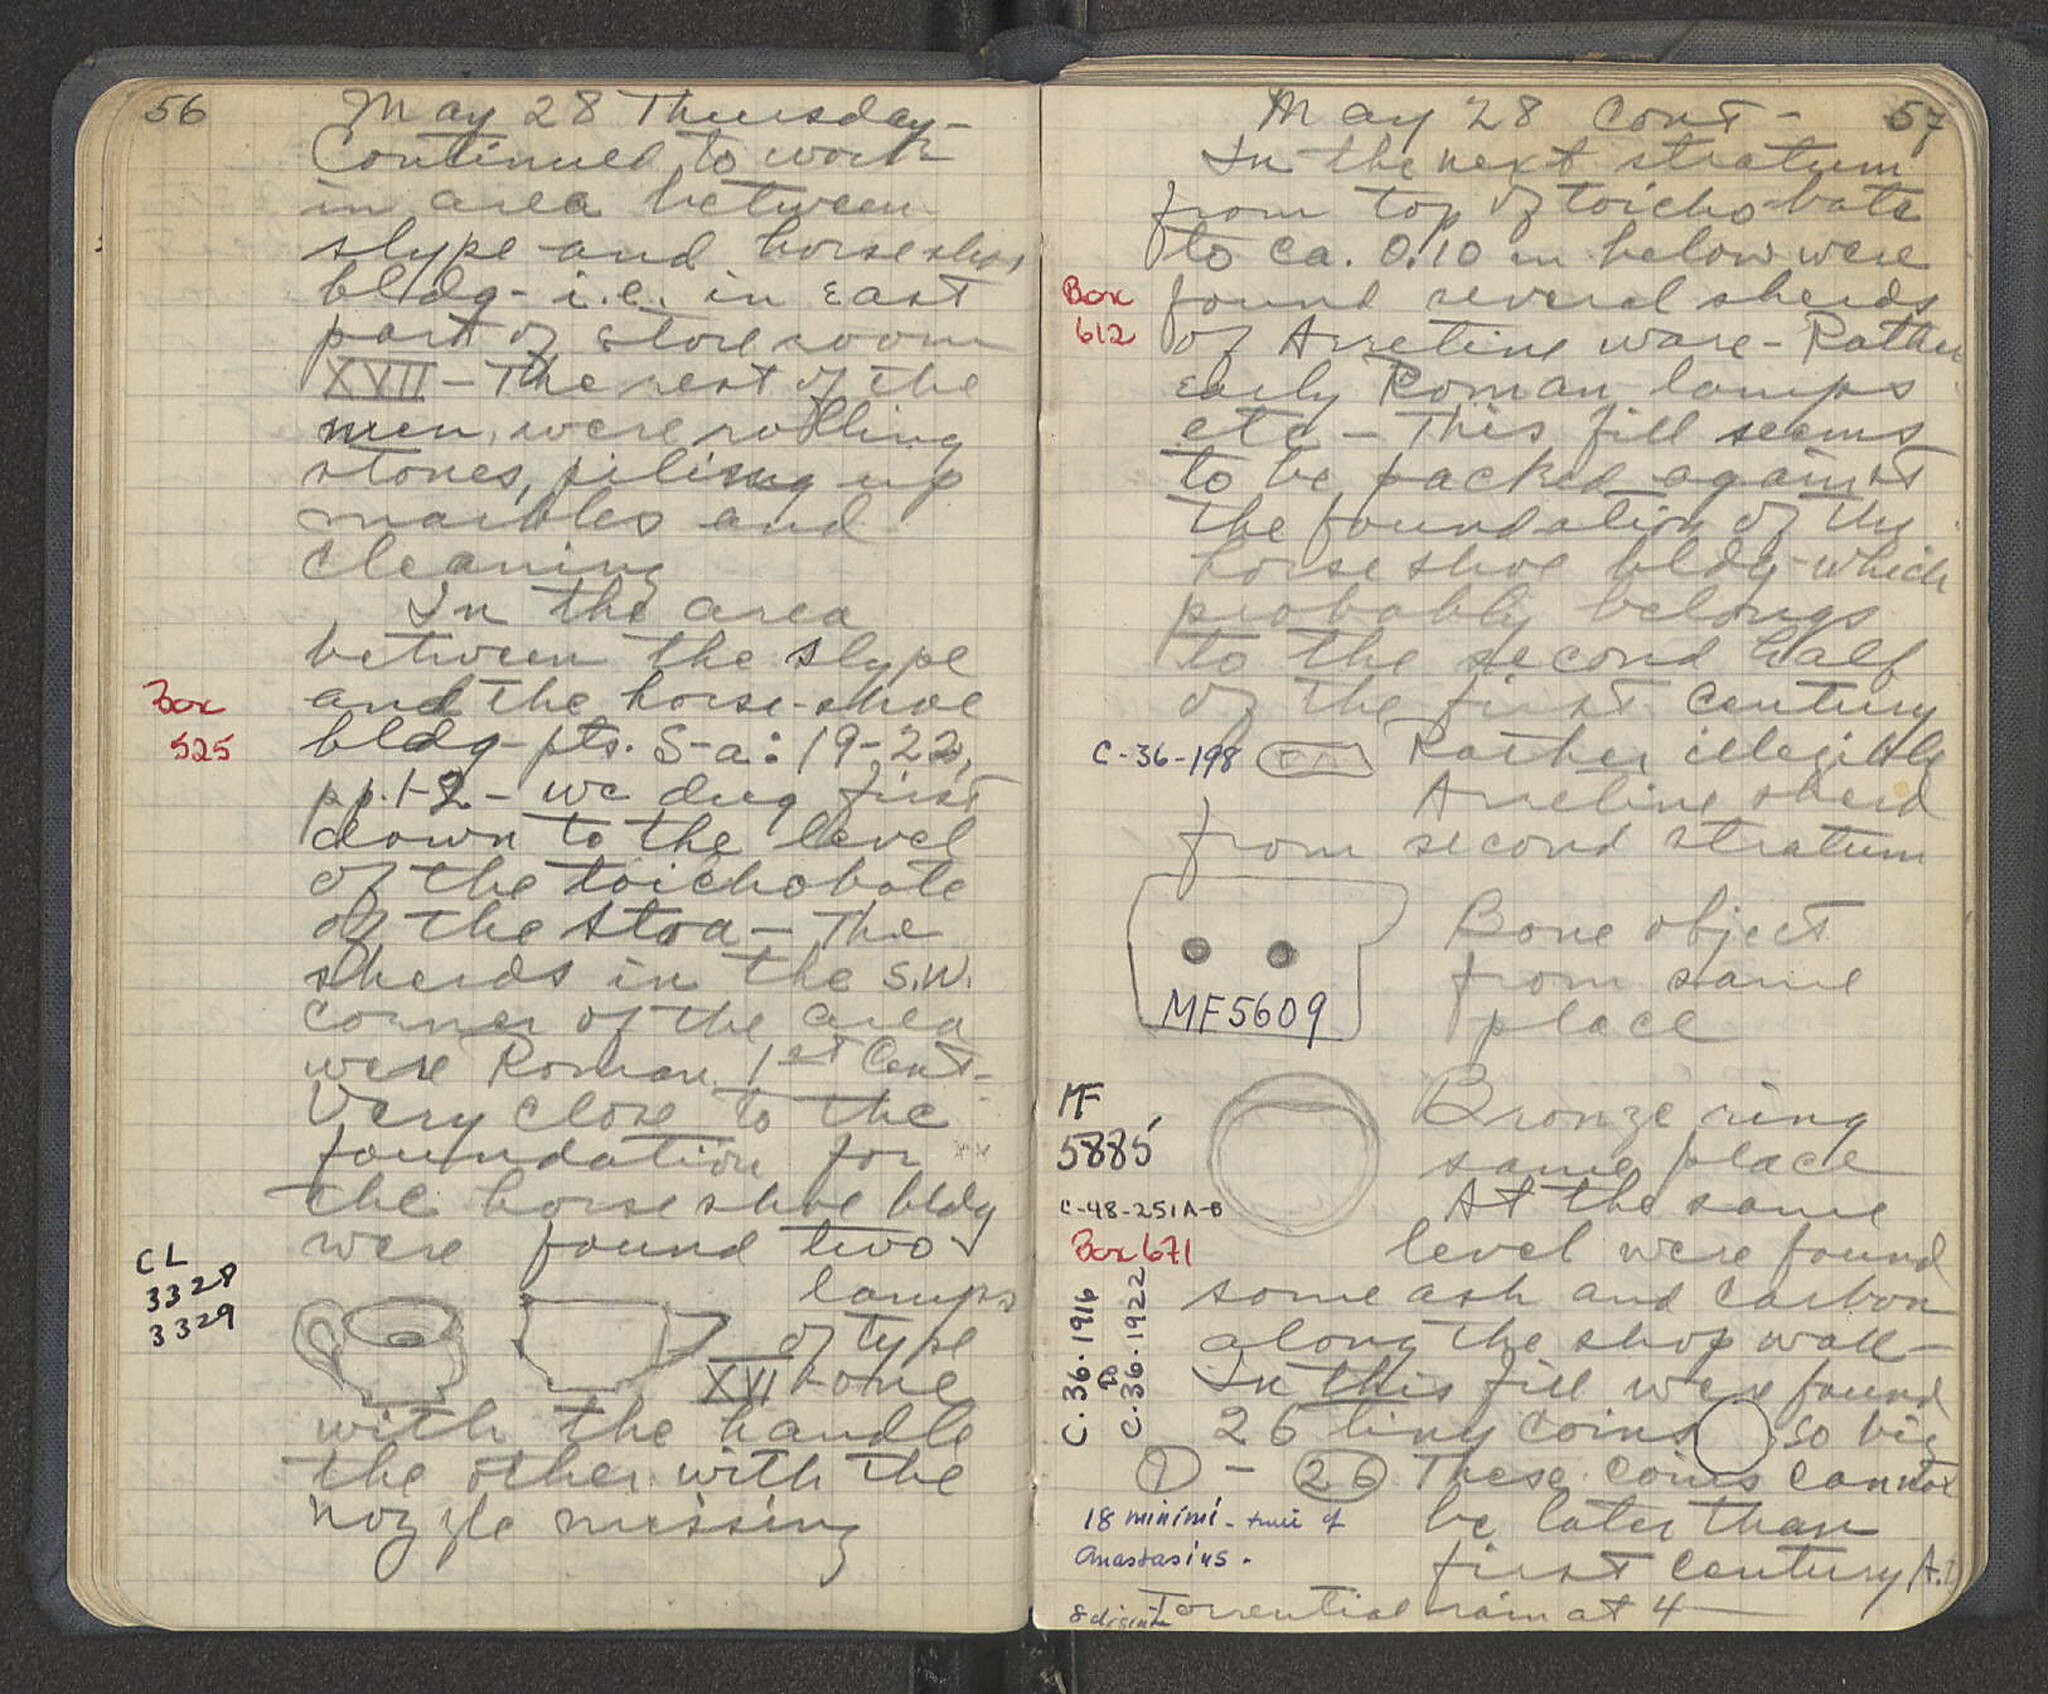 56
May 28 Thursday-
Continued to work
in area between
slype and horseshoe
bldg- i.e. in East
part of storeroom
XVII - The rest of the
men were rolling
stones, piling up
marbles and
cleaning
In the area
between the slype
Box
525
and the horse-shoe
bldg- pts. S-a: 19-22,
pp. 1-2 - we dug first
down to the level
of the toichobate
of the stoa - The
sherds in the S.W.
corner of the area
were Roman 1st Cent-
Very close to the
foundation for
the horse shoe bldg
were found two
CL
3328
3329
lamps
of type
XVI - one
with the handle
the other with the
nozzle missing
May 28 Cont -
57
In the next stratum
from top of toichobate
to ca. 0.10 m below were
Box
612
found several sherds
of Arretine ware - Rather
early Roman lamps
etc - This fill seems
to be packed against
the foundation of the
horse shoe bldg - which
probably belongs
to the second half
of the first century
C-36-198
Rather illegible
Arretine sherd
from second stratum
MF5609
Bone object
from same
place
MF
5885
Bronze ring
same place
C-48-251A-B
Box 671
At the same
level were found
some ash and carbon
along the shop wall -
C-36-1916
to
C-36-1922
In this fill were found
26 tiny coins so big
1 - 26 These coins cannot
be later than
first century A.D
18 minimi - time of
Anastasius.
Torrential rain at 4